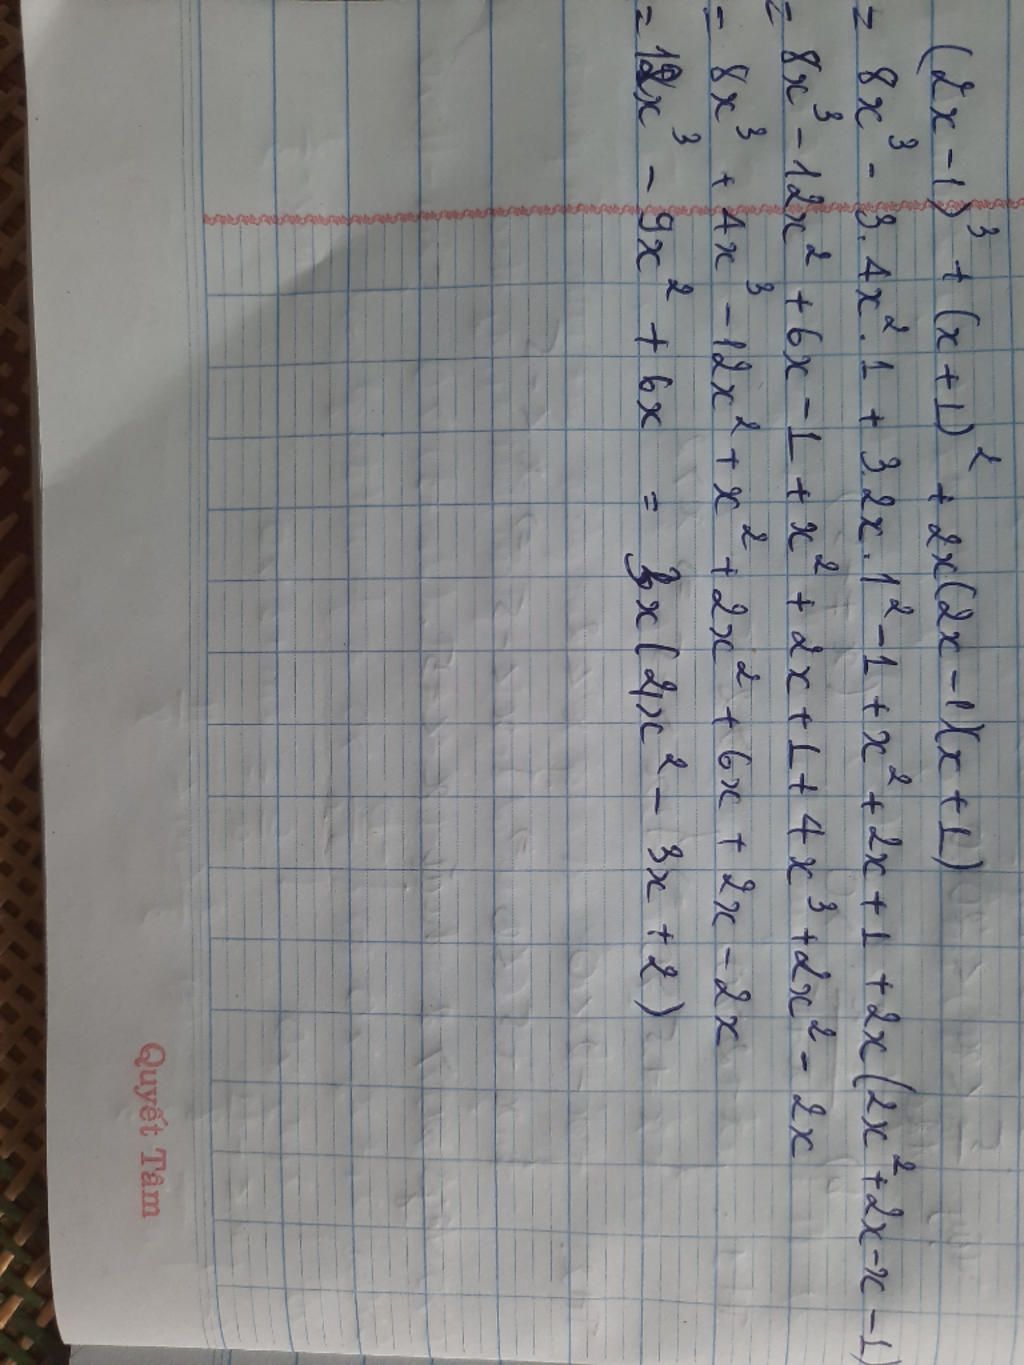 (2x-1)³ + (x+1)² + 2x(2x-1)(x+1)
= 8x³ - 3.4x².1 + 3.2x.1² - 1 + x² + 2x + 1 + 2x(2x² + 2x - x - 1)
= 8x³ - 12x² + 6x - 1 + x² + 2x + 1 + 4x³ + 2x² - 2x
= 8x³ + 4x³ - 12x² + x² + 2x² + 6x + 2x - 2x
= 12x³ - 9x² + 6x = 3x(4x² - 3x + 2)
Quyết Tâm